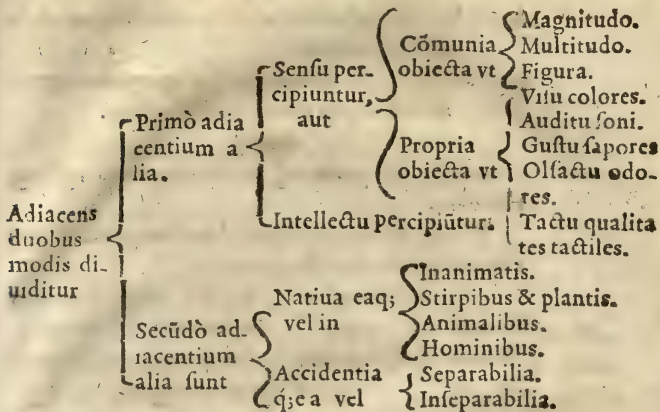 Adiacens
duobus
modis di-
uiditur
Primò adia
centium a
lia.
Senſu per-
cipiuntur,
aut
Cōmunia
obiecta vt
Magnitudo.
Multitudo.
Figura.
Propria
obiecta vt
Viſu colores.
Auditu ſoni.
Guſtu ſapores
Olfactu odo-
res.
Tactu qualita
tes tactiles.
Intellectu percipiūtur:
Secūdò ad-
iacentium
alia ſunt
Natiua eaq;
vel in
Inanimatis.
Stirpibus & plantis.
Animalibus.
Hominibus.
Accidentia
q;ea vel
Separabilia.
Inſeparabilia.